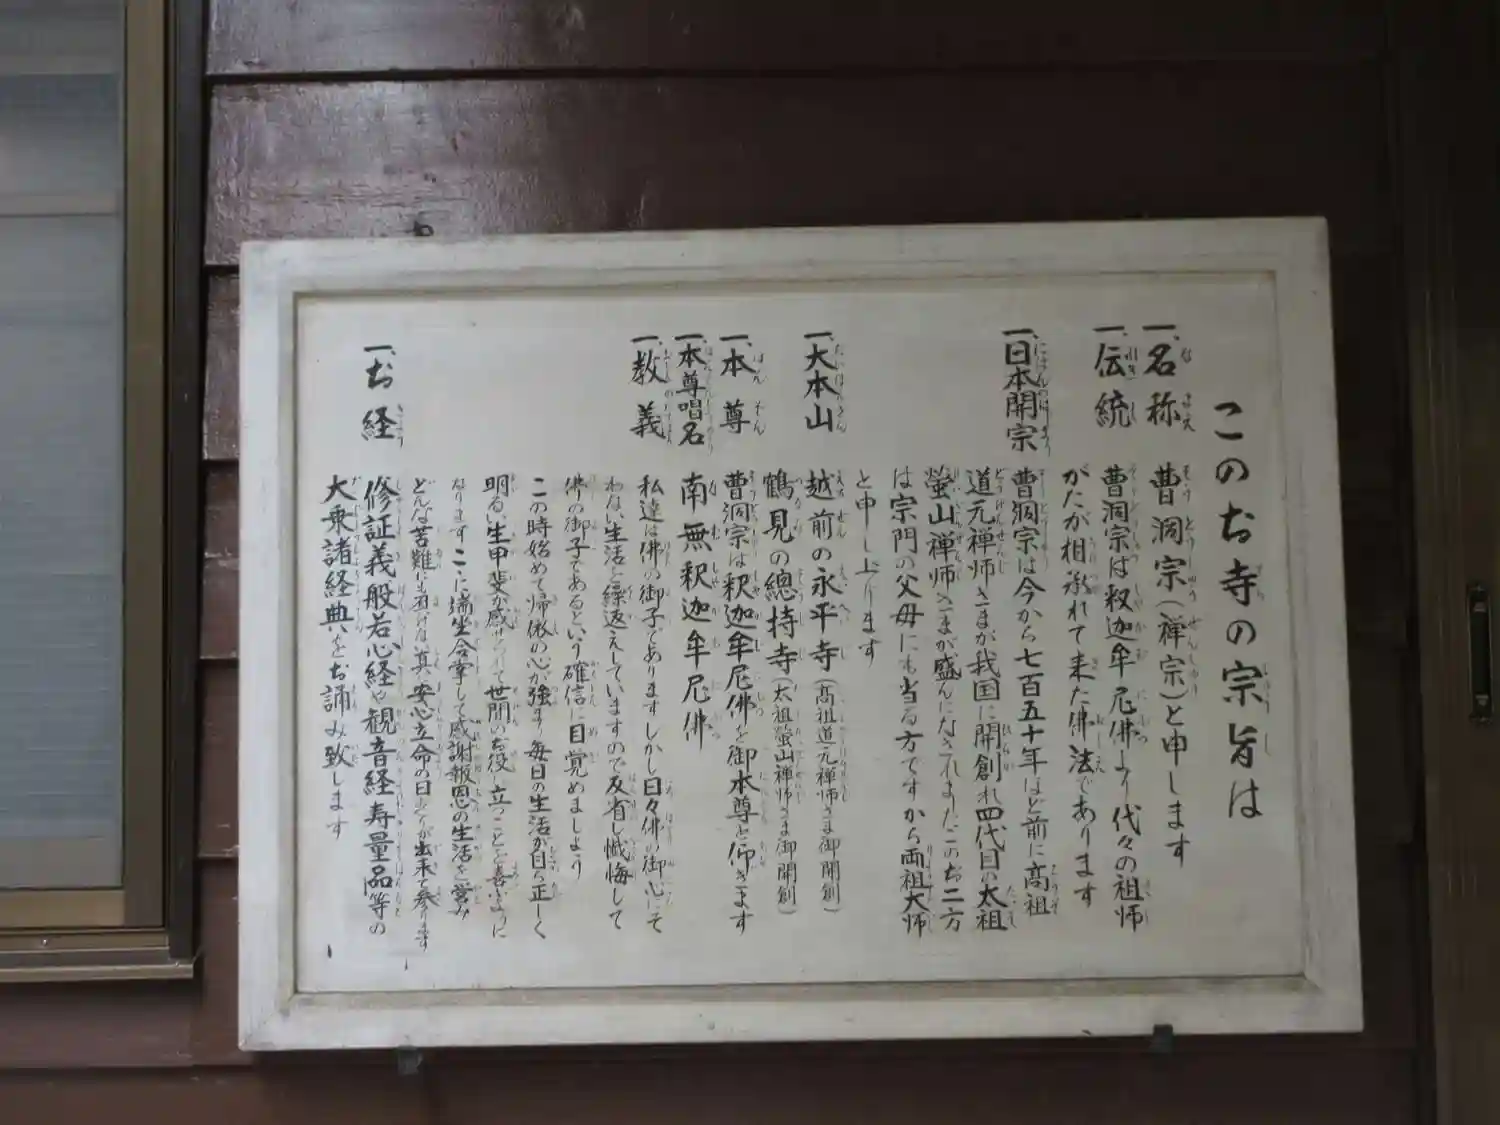 このお寺の宗旨は
一、名称 曹洞宗(禅宗)と申します
一、伝統 曹洞宗は釈迦牟尼佛より代々の祖師
がたが相承れて来た佛法であります
一、日本開宗 曹洞宗は今から七百五十年ほど前に高祖
道元禅師さまが我国に開創れ四代目の太祖
螢山禅師さまが盛んになされましたこのお二方
は宗門の父母にも当る方ですから両祖大師
と申し上げります
一、大本山 越前の永平寺(高祖道元禅師さま御開創)
鶴見の總持寺(太祖螢山禅師さま御開創)
一、本尊 曹洞宗は釈迦牟尼佛を御本尊と仰ぎます
一、本尊唱名 南無釈迦牟尼佛
一、教義 私達は佛の御子でありますしかし日々佛の御心にそ
わない生活を繰返えしていますので反省し懺悔して
佛の御子であるという確信に目覚めましょう
この時始めて帰依の心が強まり毎日の生活が自ら正しく
明るい生甲斐が感ぜられて世間のお役に立つことを喜ぶように
なります こゝに端坐合掌して感謝報恩の生活を営み
どんな苦難にも負けな 真の安心立命の日 が出来て参ります
一、お経 修証義般若心経や観音経寿量品等の
大乗諸経典をお誦み致します